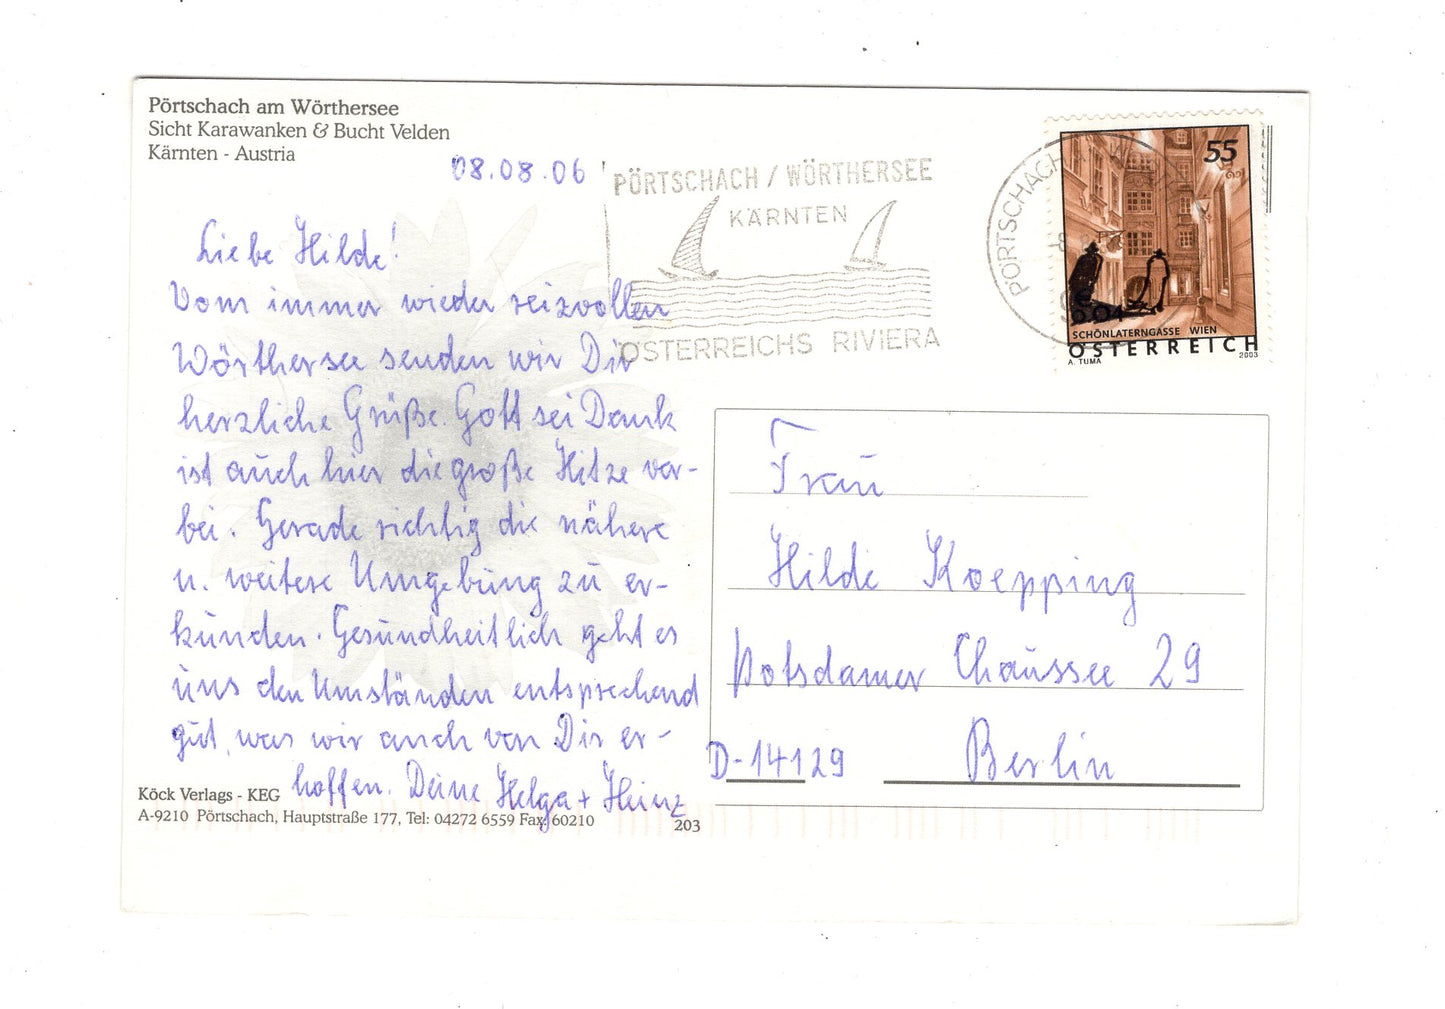 Pörtschach am Wörthersee
Sicht Karawanken & Bucht Velden
Kärnten - Austria
08.08.06
PÖRTSCHACH / WÖRTHERSEE
KÄRNTEN
ÖSTERREICHS RIVIERA
PÖRTSCHACH
55
SCHÖNLATERNGASSE WIEN
ÖSTERREICH
A. TUMA
2003
Liebe Hilde!
Vom immer wieder reizvollen
Wörthersee senden wir Dir
herzliche Grüße. Gott sei Dank
ist auch hier die große Hitze vor-
bei. Gerade richtig die nähere
u. weitere Umgebung zu er-
kunden. Gesundheitlich geht es
uns den Umständen entsprechend
gut, was wir auch von Dir er-
hoffen. Deine Helga + Heinz
Frau
Hilde Koepping
Potsdamer Chaussee 29
D-14129 Berlin
Köck Verlags - KEG
A-9210 Pörtschach, Hauptstraße 177, Tel: 04272 6559 Fax 60210
203